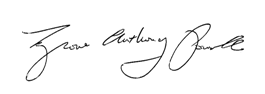 Tyrone Anthony Powell